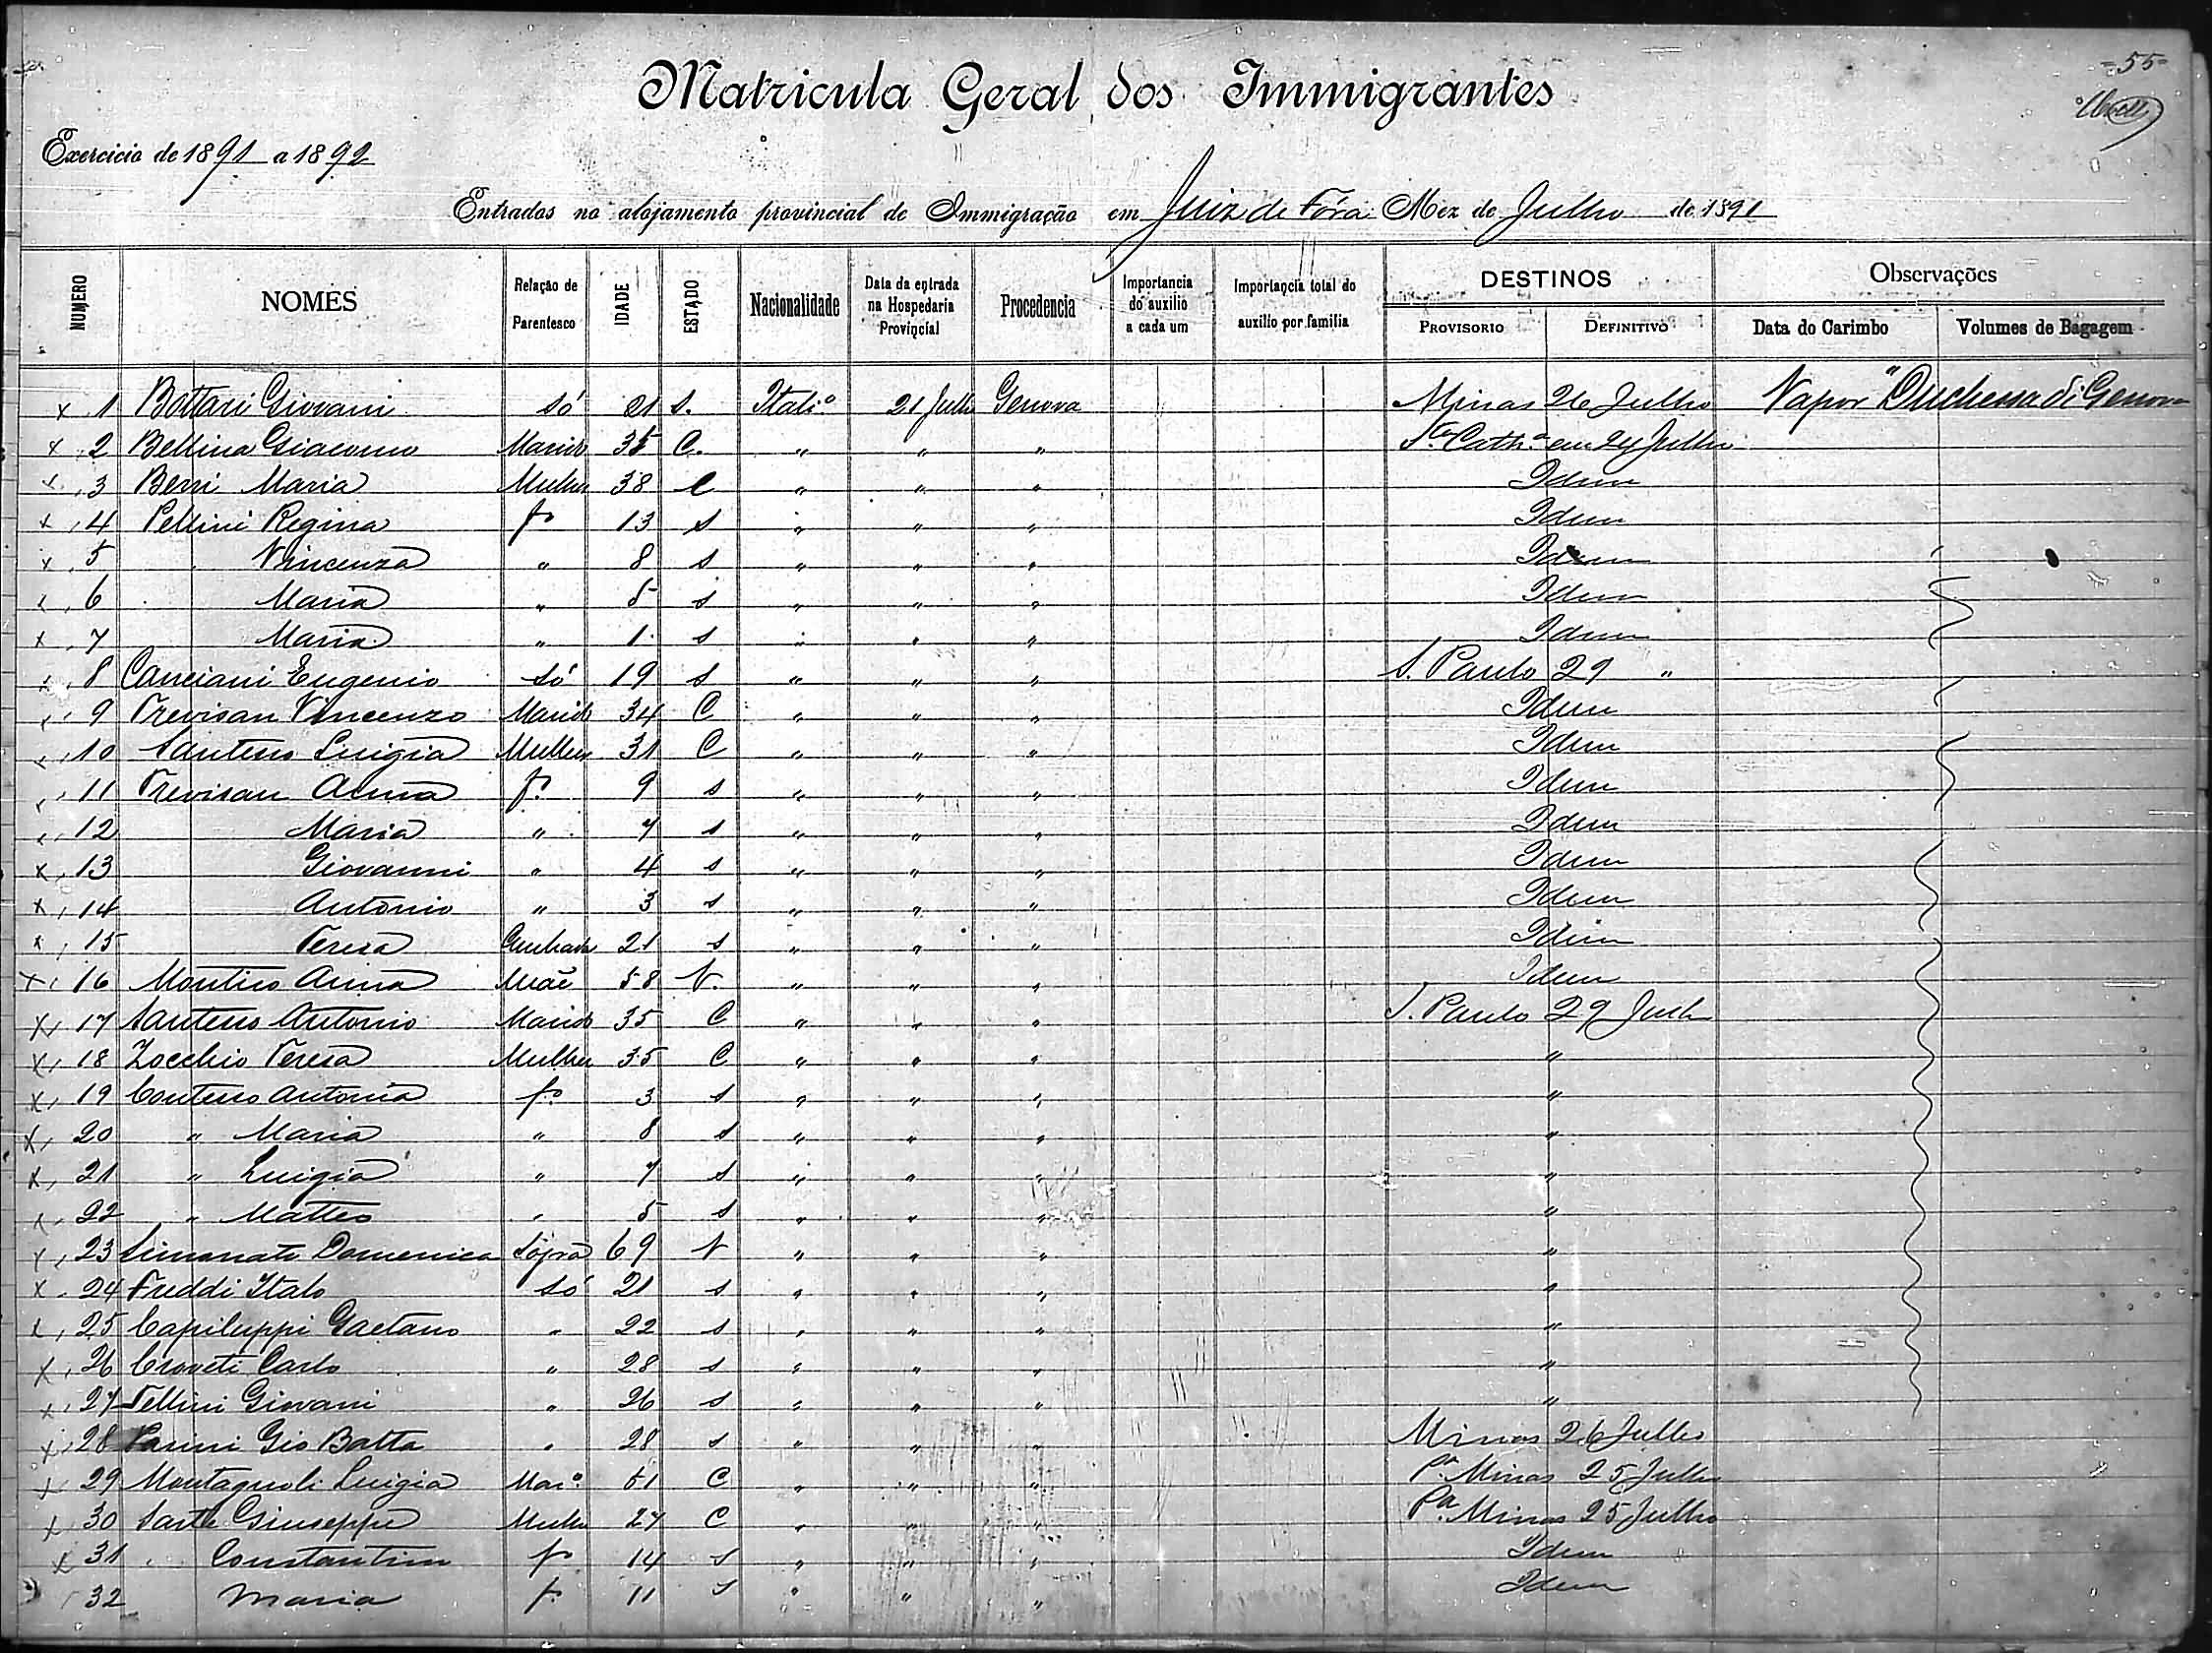 =55=
Matricula Geral dos Immigrantes
Exercicio de 1891 a 1892
Entrados no alojamento provincial de Immigração em Juiz de Fóra Mez de Julho de 1891
NUMERO NOMES Relação de Parentesco IDADE ESTADO Nacionalidade Data da entrada na Hospedaria Provincial Procedencia Importancia do auxilio a cada um Importancia total do auxilio por familia DESTINOS PROVISORIO DEFINITIVO Observações Data do Carimbo Volumes de Bagagem
x 1 Bottari Giovani só 21 S. Itali.º 21 Julh Genova Minas 26 Julho Vapor "Duchessa di Genova
x 2 Bellina Giacomo Marido 35 C. " " " Sta Cathª em 24 Julho
x 3 Berri Maria Mulher 38 C " " " Idem
x 4 Pellini Regina fº 13 s " " " Idem
x 5 Vincenza " 8 s " " " Idem
x 6 Maria " 5 s " " " Idem
x 7 Maria " 1 s " " " Idem
x 8 Canciani Eugenio só 19 s " " " S. Paulo 29 "
x 9 Trevisan Vincenzo Marido 34 C " " " Idem
x 10 Santeso Luigia Mulher 31 C " " " Idem
x 11 Trevisan Anna fº 9 s " " " Idem
x 12 Maria " 7 s " " " Idem
x 13 Giovanni " 4 s " " " Idem
x 14 Antonio " 3 s " " " Idem
x 15 Teresa Cunhada 21 s " " " Idem
x 16 Montico Anna Mãe 58 V. " " " Idem
x 17 Santeso Antonio Marido 35 C " " " S. Paulo 29 Julh
x 18 Zocchio Teresa Mulher 35 C " " " "
x 19 Conteso Antonia fº 3 s " " " "
x 20 " Maria " 8 s " " " "
x 21 " Luigia " 7 s " " " "
x 22 " Matteo " 5 s " " " "
x 23 Simonato Domenica Sogra 69 V " " " "
x 24 Freddi Italo só 21 s " " " "
x 25 Capiluppi Gaetano " 22 s " " " "
x 26 Croveti Carlo " 28 s " " " "
x 27 Tellini Giovani " 26 s " " " "
x 28 Parini Gio Batta " 28 s " " " Minas 26 Julho
x 29 Montagnoli Luigia Mar.º 51 C " " " Pª Minas 25 Julho
x 30 Giuseppe Mulher 27 C " " " Pª Minas 25 Julho
x 31 Constantino fº 14 s " " " Idem
32 Maria fº 11 s " " " Idem